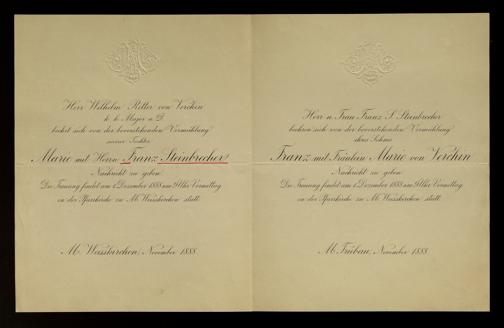 Herr Wilhelm Ritter von
k. k. Major a. D.
beehrt sich von der bevorstehenden Vermählung
seiner Tochter
Marie mit Herrn Franz Steinbrecher
Nachricht zu geben.
Die Trauung findet am 1. Dezember 1888 um Uhr Vormittag
in der Pfarrkirche zu M. Weisskirchen statt.
M. Weisskirchen, November 1888.
Herr u. Frau Franz S. Steinbrecher
beehren sich von der bevorstehenden Vermählung
ihres Sohnes
Franz mit Fräulein Marie von
Nachricht zu geben.
Die Trauung findet am Dezember 1888 um Uhr Vormittag
in der Pfarrkirche zu M. Weisskirchen statt.
M. Trübau, November 1888.